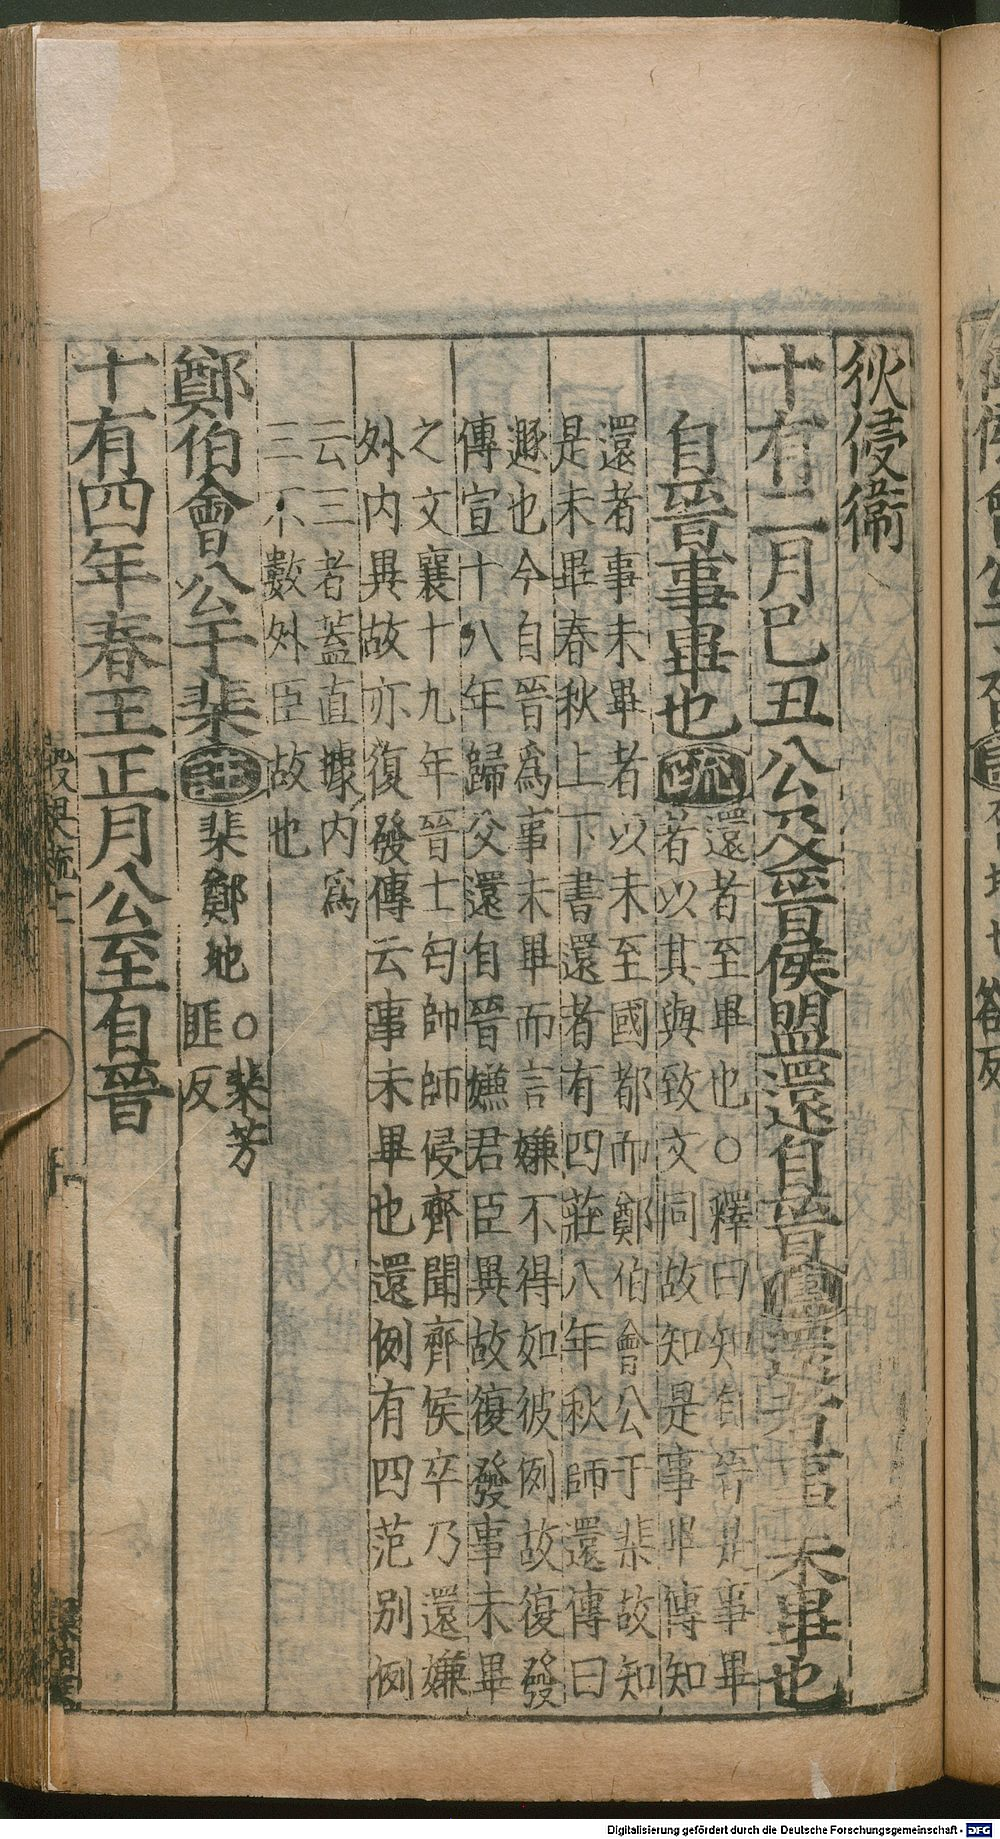 狄侵衞
十有二月己丑公及晋侯盟還自晋傳還者事未畢也
自晋事畢也疏還者至畢也○釋曰知自晋是事畢
者以其與致文同故知是事畢傳知
還者事未畢者以未至國都而鄭伯會公于棐故知
是未畢春秋上下書還者有四莊八年秋師還傳曰
遯也今自晉爲事未畢而言嫌不得如彼例故復發
傳宣十八年歸父還自晉嫌君臣異故復發事未畢
之文襄十九年晉士匄帥師侵齊聞齊侯卒乃還嫌
外内異故亦復發傳云事未畢也還例有四范別例
云三者蓋直據内爲
三不數外臣故也
鄭伯會公于棐註棐鄭地○棐芳
匪反
十有四年春王正月公至自晉
Digitalisierung gefördert durch die Deutsche Forschungsgemeinschaft - DFG